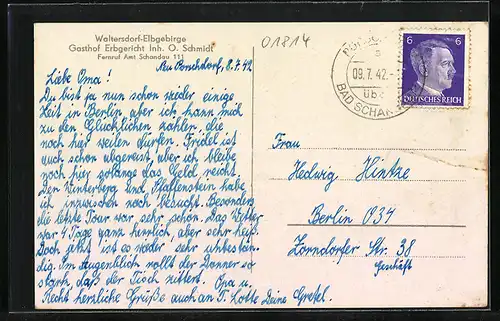 Waltersdorf-Elbgebirge
Gasthof Erbgericht Inh. O. Schmidt
Fernruf Amt Schandau 111
01814
Porschdorf, 8.7.42
Liebe Oma!
Du bist ja nun schon wieder einige
Zeit in Berlin aber ich kann mich
zu den Glücklichen zählen, die
noch hier weilen dürfen. Fridel ist
auch schon abgereist, aber ich bleibe
noch hier solange das Geld reicht.
Den Winterberg und Pfaffenstein habe
ich inzwischen noch besucht. Besonders
die letzte Tour war sehr schön. Das Wetter
war 4 Tage ganz herrlich, aber sehr heiß.
Doch jetzt ist es wieder sehr unbestän-
dig. Im Augenblick rollt der Donner so
stark, daß der Tisch zittert. Opa u.
Recht herzliche Grüße auch an T. Lotte Deine Gretel.
09.7.42.
BAD SCHAN
6 6
DEUTSCHES REICH
Frau
Hedwig Hintze
Berlin O34
Zorndorfer Str. 38
Geschäft